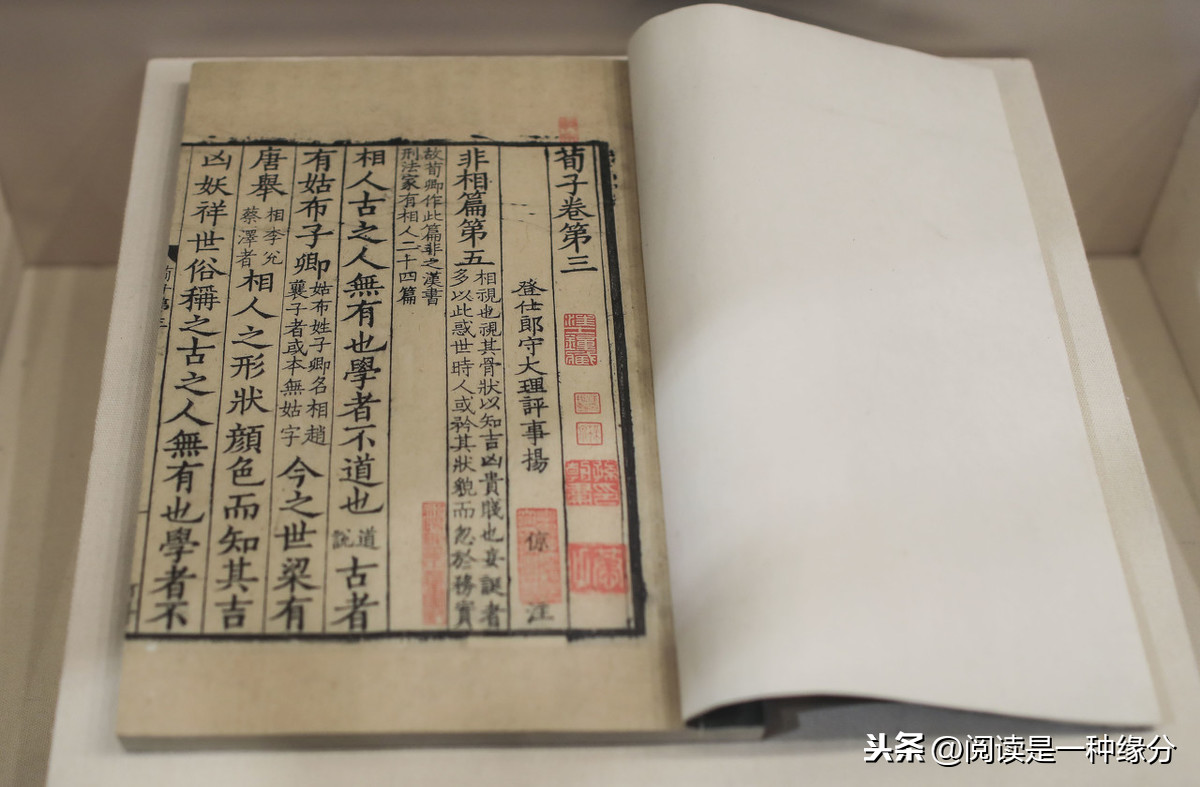 荀子卷第三
登仕郎守大理評事揚 倞 注
非相篇第五
相視也視其骨狀以知吉凶貴賤也妄誕者
多以此惑世時人或矜其狀貌而忽於務實
故荀卿作此篇非之漢書
刑法家有相人二十四篇
相人古之人無有也學者不道也
道
說
古者
有姑布子卿
姑布姓子卿名相趙
襄子者或本無姑字
今之世梁有
唐舉
相李兊
蔡澤者
相人之形狀顔色而知其吉
凶妖祥世俗稱之古之人無有也學者不
头条 @阅读是一种缘分